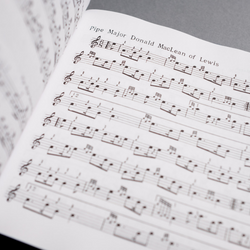 Pipe Major Donald MacLean of Lewis